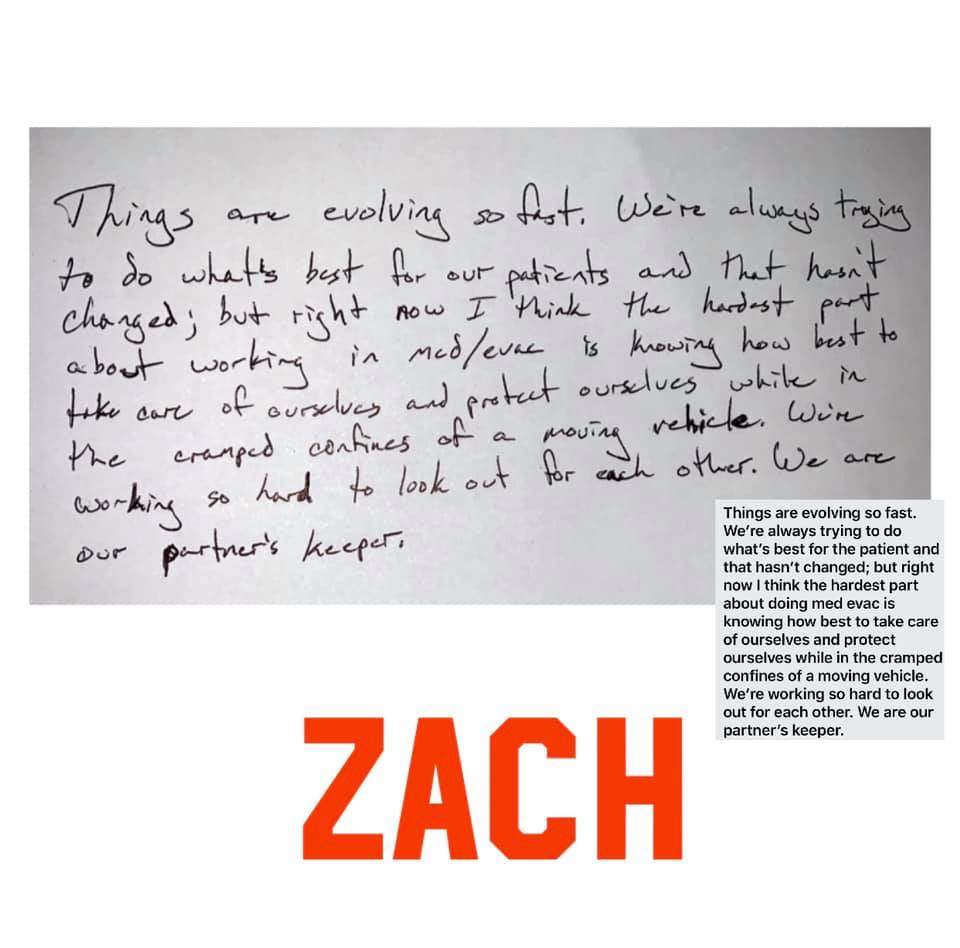 Things are evolving so fast. We're always trying
to do what's best for our patients and that hasn't
changed; but right now I think the hardest part
about working in med/evac is knowing how best to
take care of ourselves and protect ourselves while in
the cramped confines of a moving vehicle. We're
working so hard to look out for each other. We are
our partner's keeper.
Things are evolving so fast.
We're always trying to do
what's best for the patient and
that hasn't changed; but right
now I think the hardest part
about doing med evac is
knowing how best to take care
of ourselves and protect
ourselves while in the cramped
confines of a moving vehicle.
We're working so hard to look
out for each other. We are our
partner's keeper.
ZACH